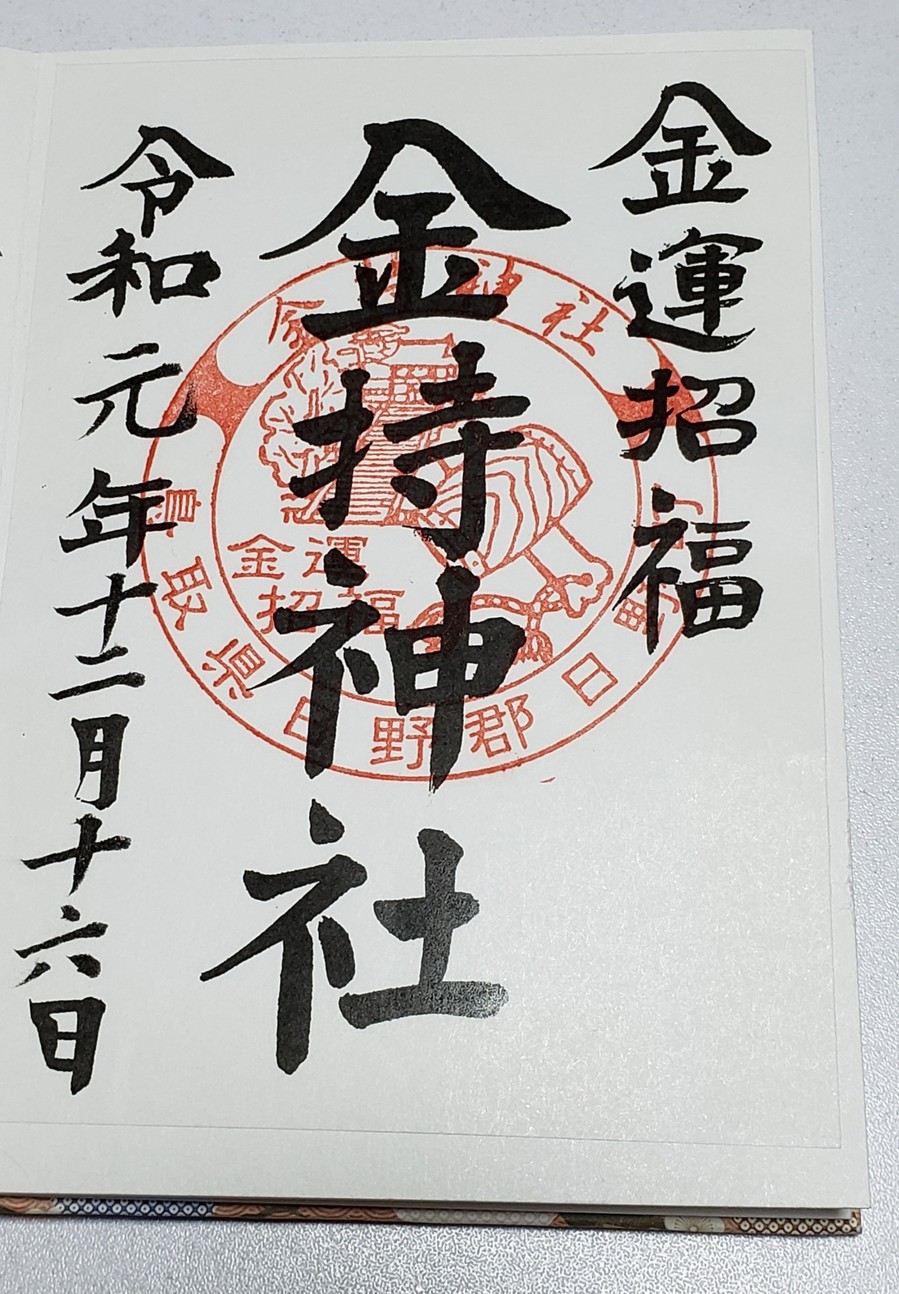 金運招福
金持神社
令和元年十二月十六日
金持神社
金運
招福
鳥取県日野郡日野町